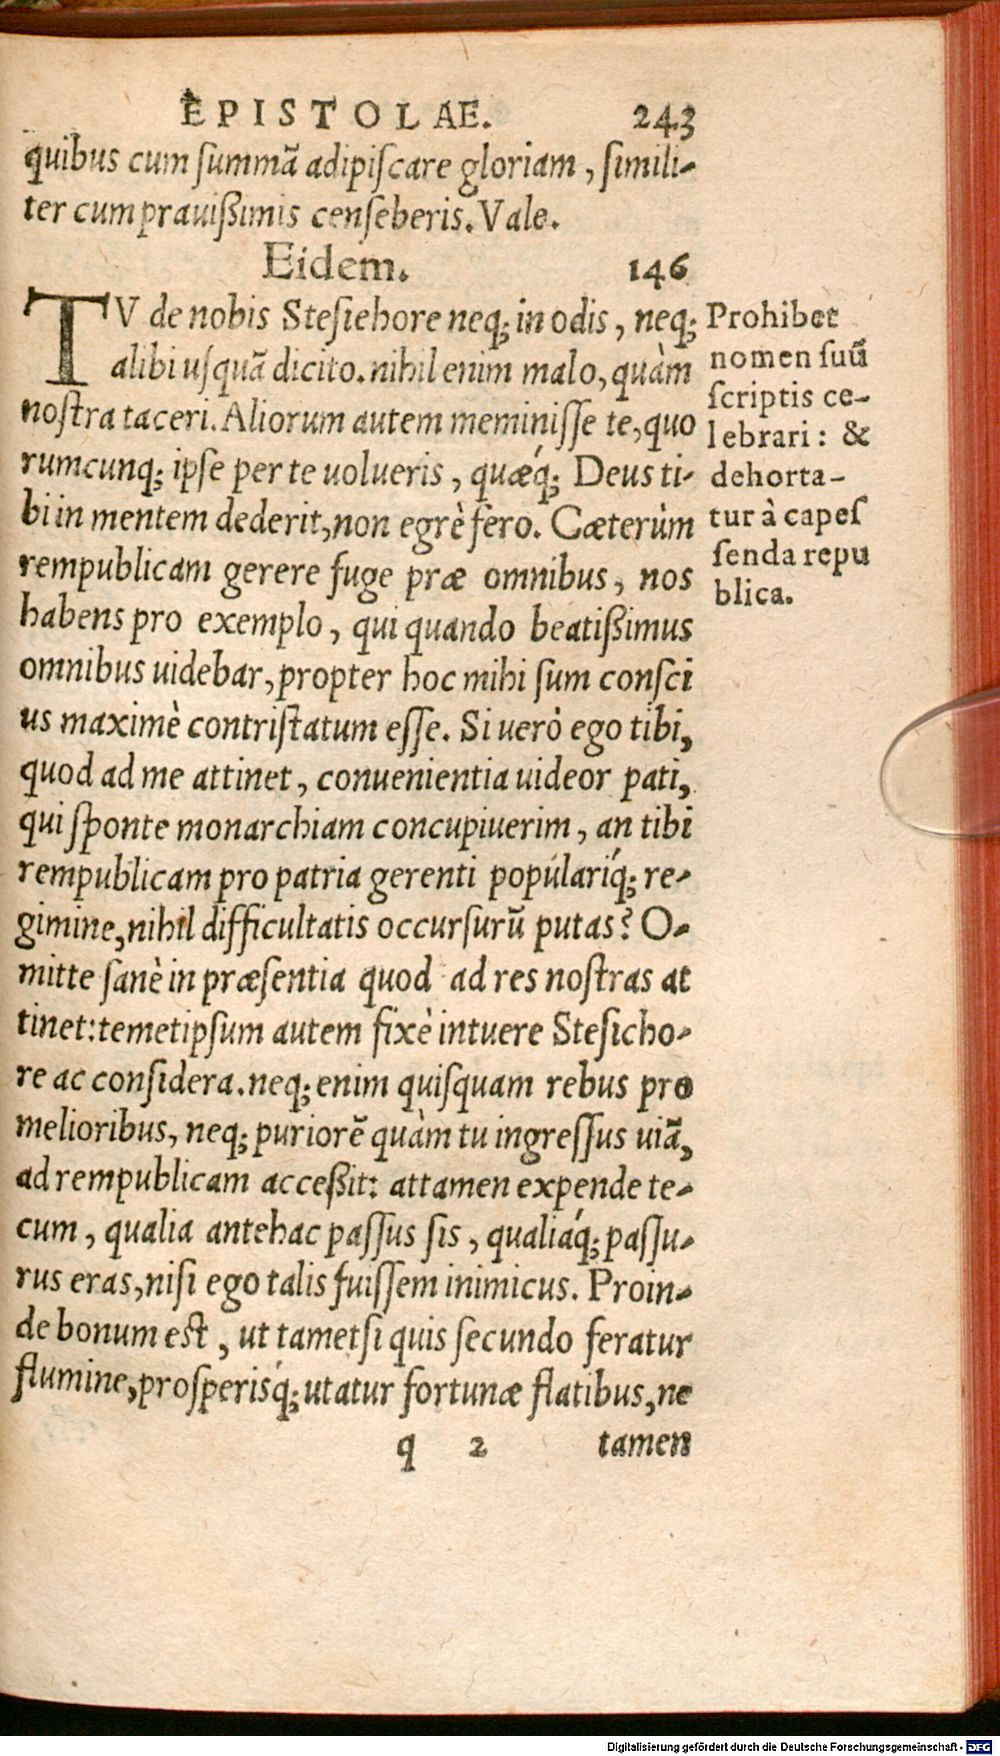 EPISTOLAE. 243
quibus cum ſummā adipiſcare gloriam, ſimili-
ter cum prauiſsimis cenſeberis. Vale.
Eidem. 146
TV de nobis Steſiehore neq; in odis, neq;
alibi uſquā dicito. nihil enim malo, quàm
noſtra taceri. Aliorum autem meminiſſe te, quo
rumcunq; ipſe per te uolueris, quæq́; Deus ti-
bi in mentem dederit, non egrè fero. Cæterùm
rempublicam gerere fuge præ omnibus, nos
habens pro exemplo, qui quando beatiſsimus
omnibus uidebar, propter hoc mihi ſum conſci
us maximè contriſtatum eſſe. Si uerò ego tibi,
quod ad me attinet, conuenientia uideor pati,
qui ſponte monarchiam concupiuerim, an tibi
rempublicam pro patria gerenti populariq́; re-
gimine, nihil difficultatis occurſurū putas? O-
mitte ſanè in præſentia quod ad res noſtras at
tinet: temetipſum autem fixè intuere Steſicho-
re ac conſidera. neq; enim quiſquam rebus pro
melioribus, neq; puriorē quàm tu ingreſſus uiā,
ad rempublicam acceſsit: attamen expende te-
cum, qualia antehac paſſus ſis, qualiaq́; paſſu-
rus eras, niſi ego talis fuiſſem inimicus. Proin-
de bonum eſt, ut tametſi quis ſecundo feratur
flumine, proſperisq́; utatur fortunæ flatibus, ne
q 2 tamen
Prohibet
nomen ſuū
ſcriptis ce-
lebrari: &
dehorta-
tur à capeſ
ſenda repu
blica.
Digitalisierung gefördert durch die Deutsche Forschungsgemeinschaft - DFG